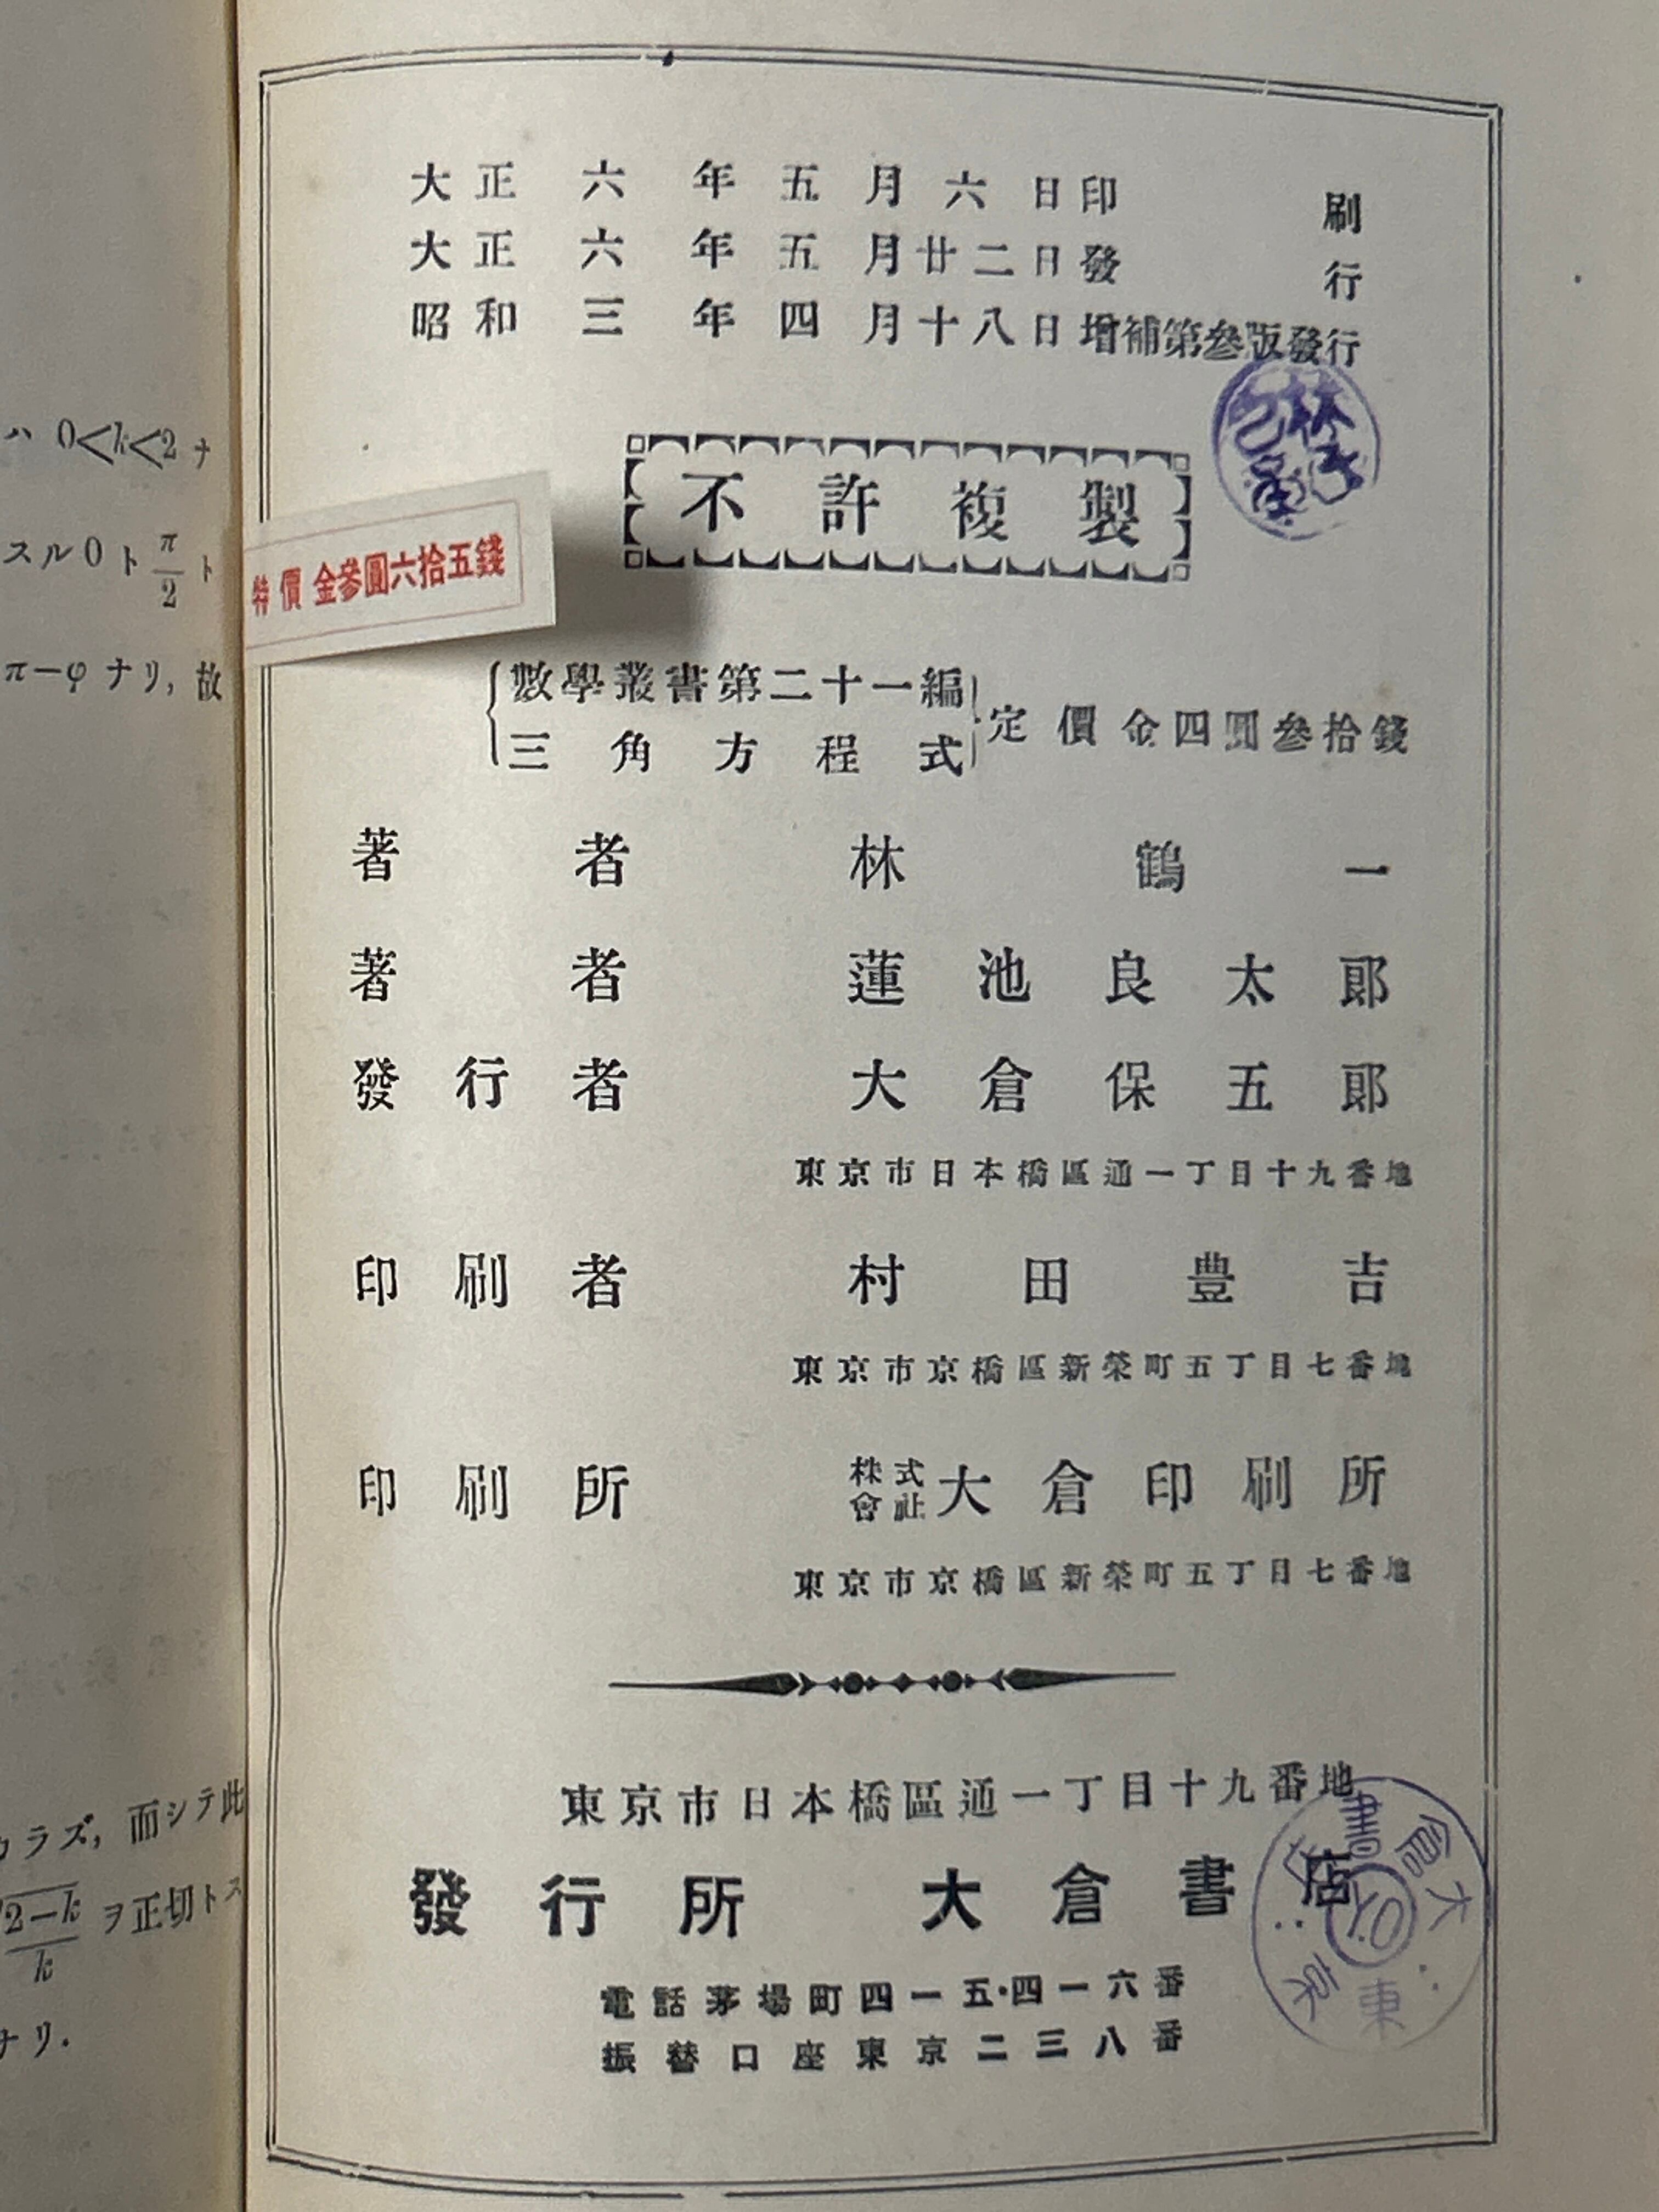 ハ 0<k<2 ナ
スル 0 ト π/2 ト
π－φ ナリ, 故
カラズ, 而シテ此
√2－k/k ヲ正切トス
ナリ.
大正六年五月六日印刷
大正六年五月廿二日發行
昭和三年四月十八日增補第參版發行
不許複製
特價 金參圓六拾五錢
數學叢書第二十一編
三角方程式
定價金四圓參拾錢
著者 林鶴一
著者 蓮池良太郎
發行者 大倉保五郎
東京市日本橋區通一丁目十九番地
印刷者 村田豊吉
東京市京橋區新榮町五丁目七番地
印刷所 株式會社大倉印刷所
東京市京橋區新榮町五丁目七番地
東京市日本橋區通一丁目十九番地
發行所 大倉書店
電話茅場町四一五・四一六番
振替口座東京二三八番
大倉書店
東京